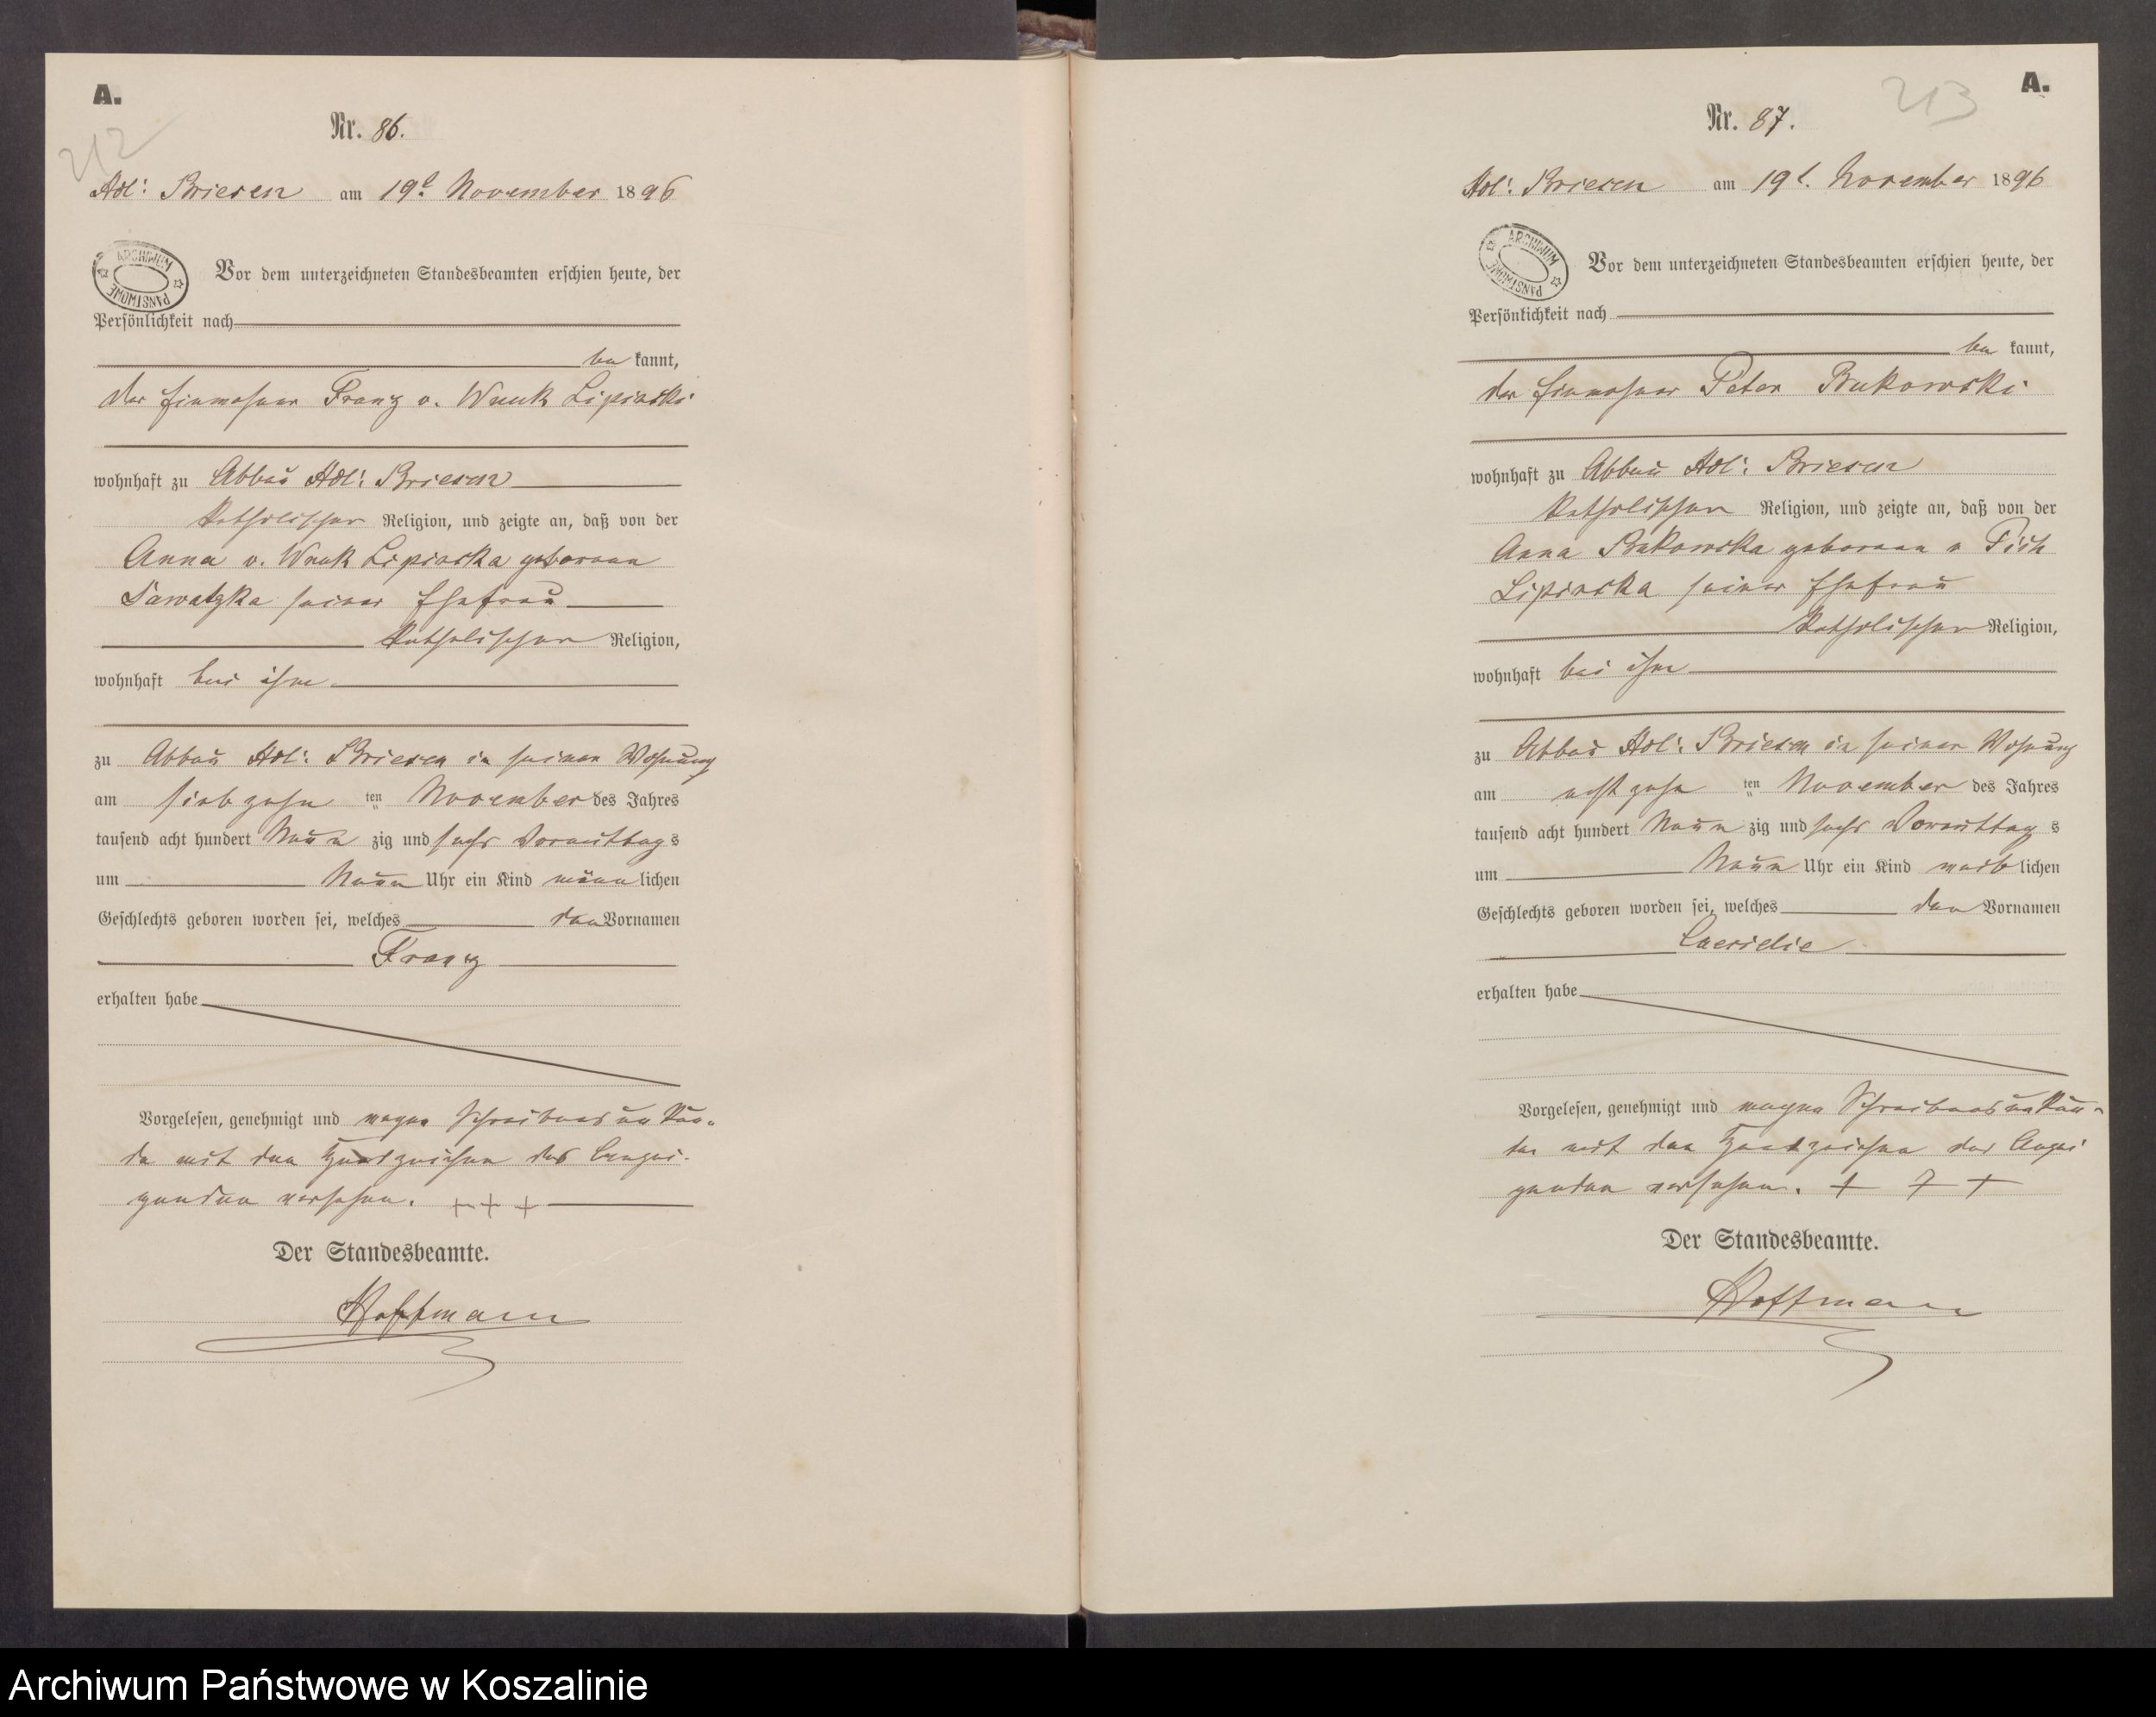 A.
212
Nr. 86.
Adl: Briesen am 19t November 1896
ARCHIWUM PAŃSTWOWE
Vor dem unterzeichneten Standesbeamten erschien heute, der
Persönlichkeit nach
be kannt,
der Einwohner Franz v. Wnuk Lipinski
wohnhaft zu Abbau Adl: Briesen
katholischer Religion, und zeigte an, daß von der
Anna v. Wnuk Lipinska geborenen
seiner Ehefrau
katholischer Religion,
wohnhaft bei ihm
zu Abbau Adl: Briesen in seiner Wohnung
am siebzehn ten November des Jahres
tausend acht hundert Neun zig und sechs Vormittag s
um Neun Uhr ein Kind männ lichen
Geschlechts geboren worden sei, welches den Vornamen
Franz
erhalten habe
Vorgelesen, genehmigt und wegen Schreibensunkun-
de mit den Handzeichen des Anzei-
genden versehen. + + +
Der Standesbeamte.
Hoffmann
A.
213
Nr. 87.
Adl: Briesen am 19t. November 1896
ARCHIWUM PAŃSTWOWE
Vor dem unterzeichneten Standesbeamten erschien heute, der
Persönlichkeit nach
be kannt,
der Einwohner Peter Bukowski
wohnhaft zu Abbau Adl: Briesen
katholischer Religion, und zeigte an, daß von der
Anna Bukowska geborenen v
Lipinska seiner Ehefrau
katholischer Religion,
wohnhaft bei ihm
zu Abbau Adl: Briesen in seiner Wohnung
am achtzehn ten November des Jahres
tausend acht hundert Neun zig und sechs Vormittag s
um Neun Uhr ein Kind weib lichen
Geschlechts geboren worden sei, welches den Vornamen
erhalten habe
Vorgelesen, genehmigt und wegen Schreibensunkun-
de mit den Handzeichen des Anzei
genden versehen. + + +
Der Standesbeamte.
Hoffmann
Archiwum Państwowe w Koszalinie